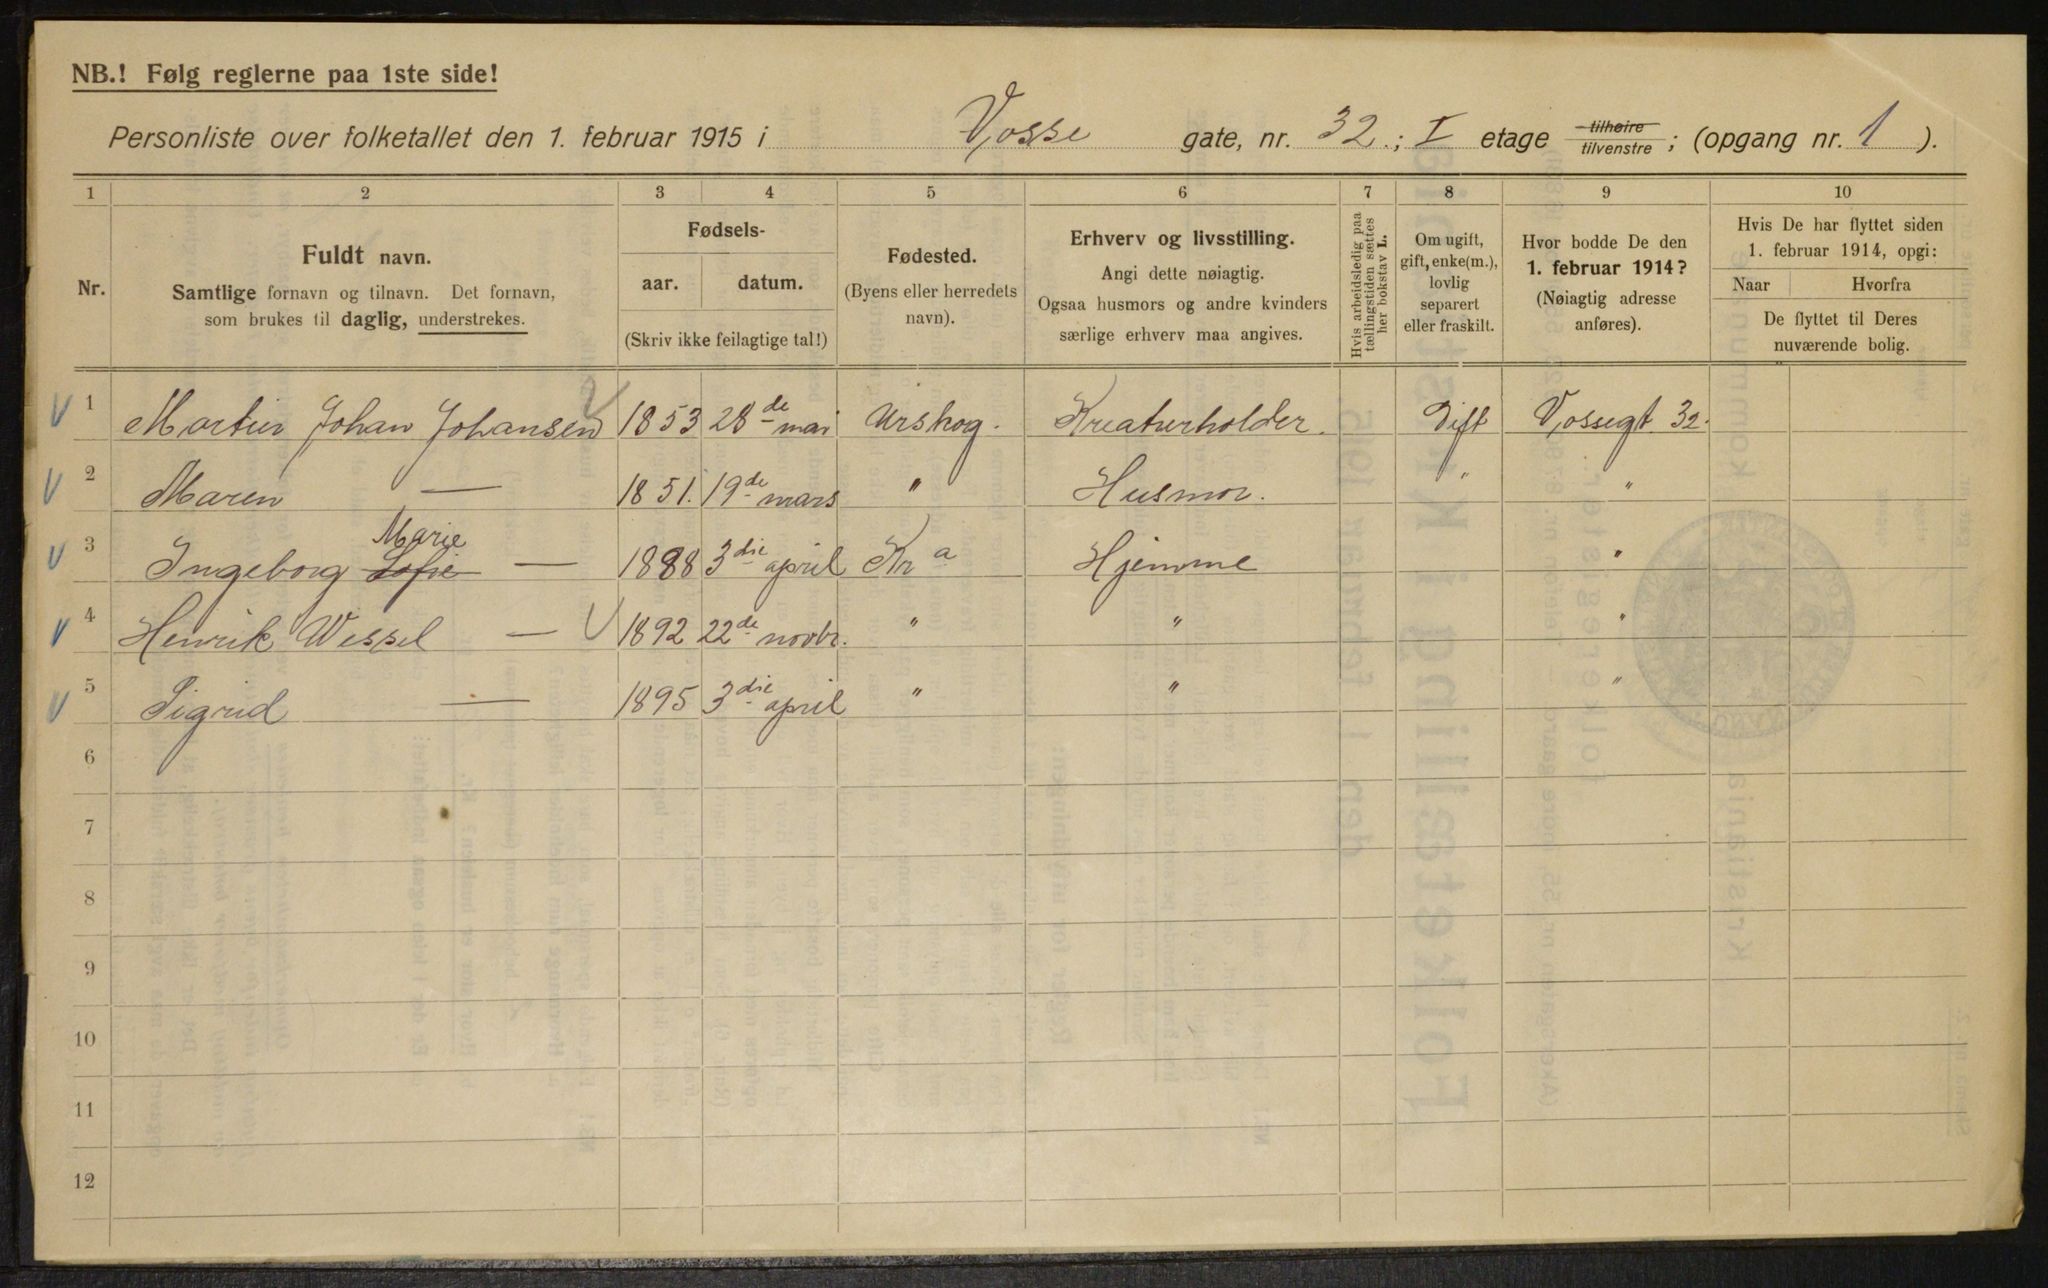 NB.! Følg reglerne paa 1ste side!
Personliste over folketallet den 1. februar 1915 i Vosse gate, nr. 32.; I etage tilhøire tilvenstre; (opgang nr. 1 ).
1 2 3 4 5 6 7 8 9 10
Nr.
Fuldt navn.
Samtlige fornavn og tilnavn. Det fornavn,
som brukes til daglig, understrekes.
Fødsels-
aar. datum.
(Skriv ikke feilagtige tal!)
Fødested.
(Byens eller herredets
navn).
Erhverv og livsstilling.
Angi dette nøiagtig.
Ogsaa husmors og andre kvinders
særlige erhverv maa angives.
Hvis arbeidsledig paa
tællingstiden sættes
her bokstav L.
Om ugift,
gift, enke(m.),
lovlig
separert
eller fraskilt.
Hvor bodde De den
1. februar 1914?
(Nøiagtig adresse
anføres).
Hvis De har flyttet siden
1. februar 1914, opgi:
Naar Hvorfra
De flyttet til Deres
nuværende bolig.
1 Martin Johan Johansen 1853 28de mai Urskog. Kreaturholder. Gift Vossegt 32.
2 Maren — 1851. 19de mars " Husmor. " "
3 Ingeborg Sofie Marie — 1888 3die april Kra Hjemme "
4 Henrik Wessel — 1892 22de novbr. " " "
5 Sigrid — 1895 3die april " " "
6
7
8
9
10
11
12